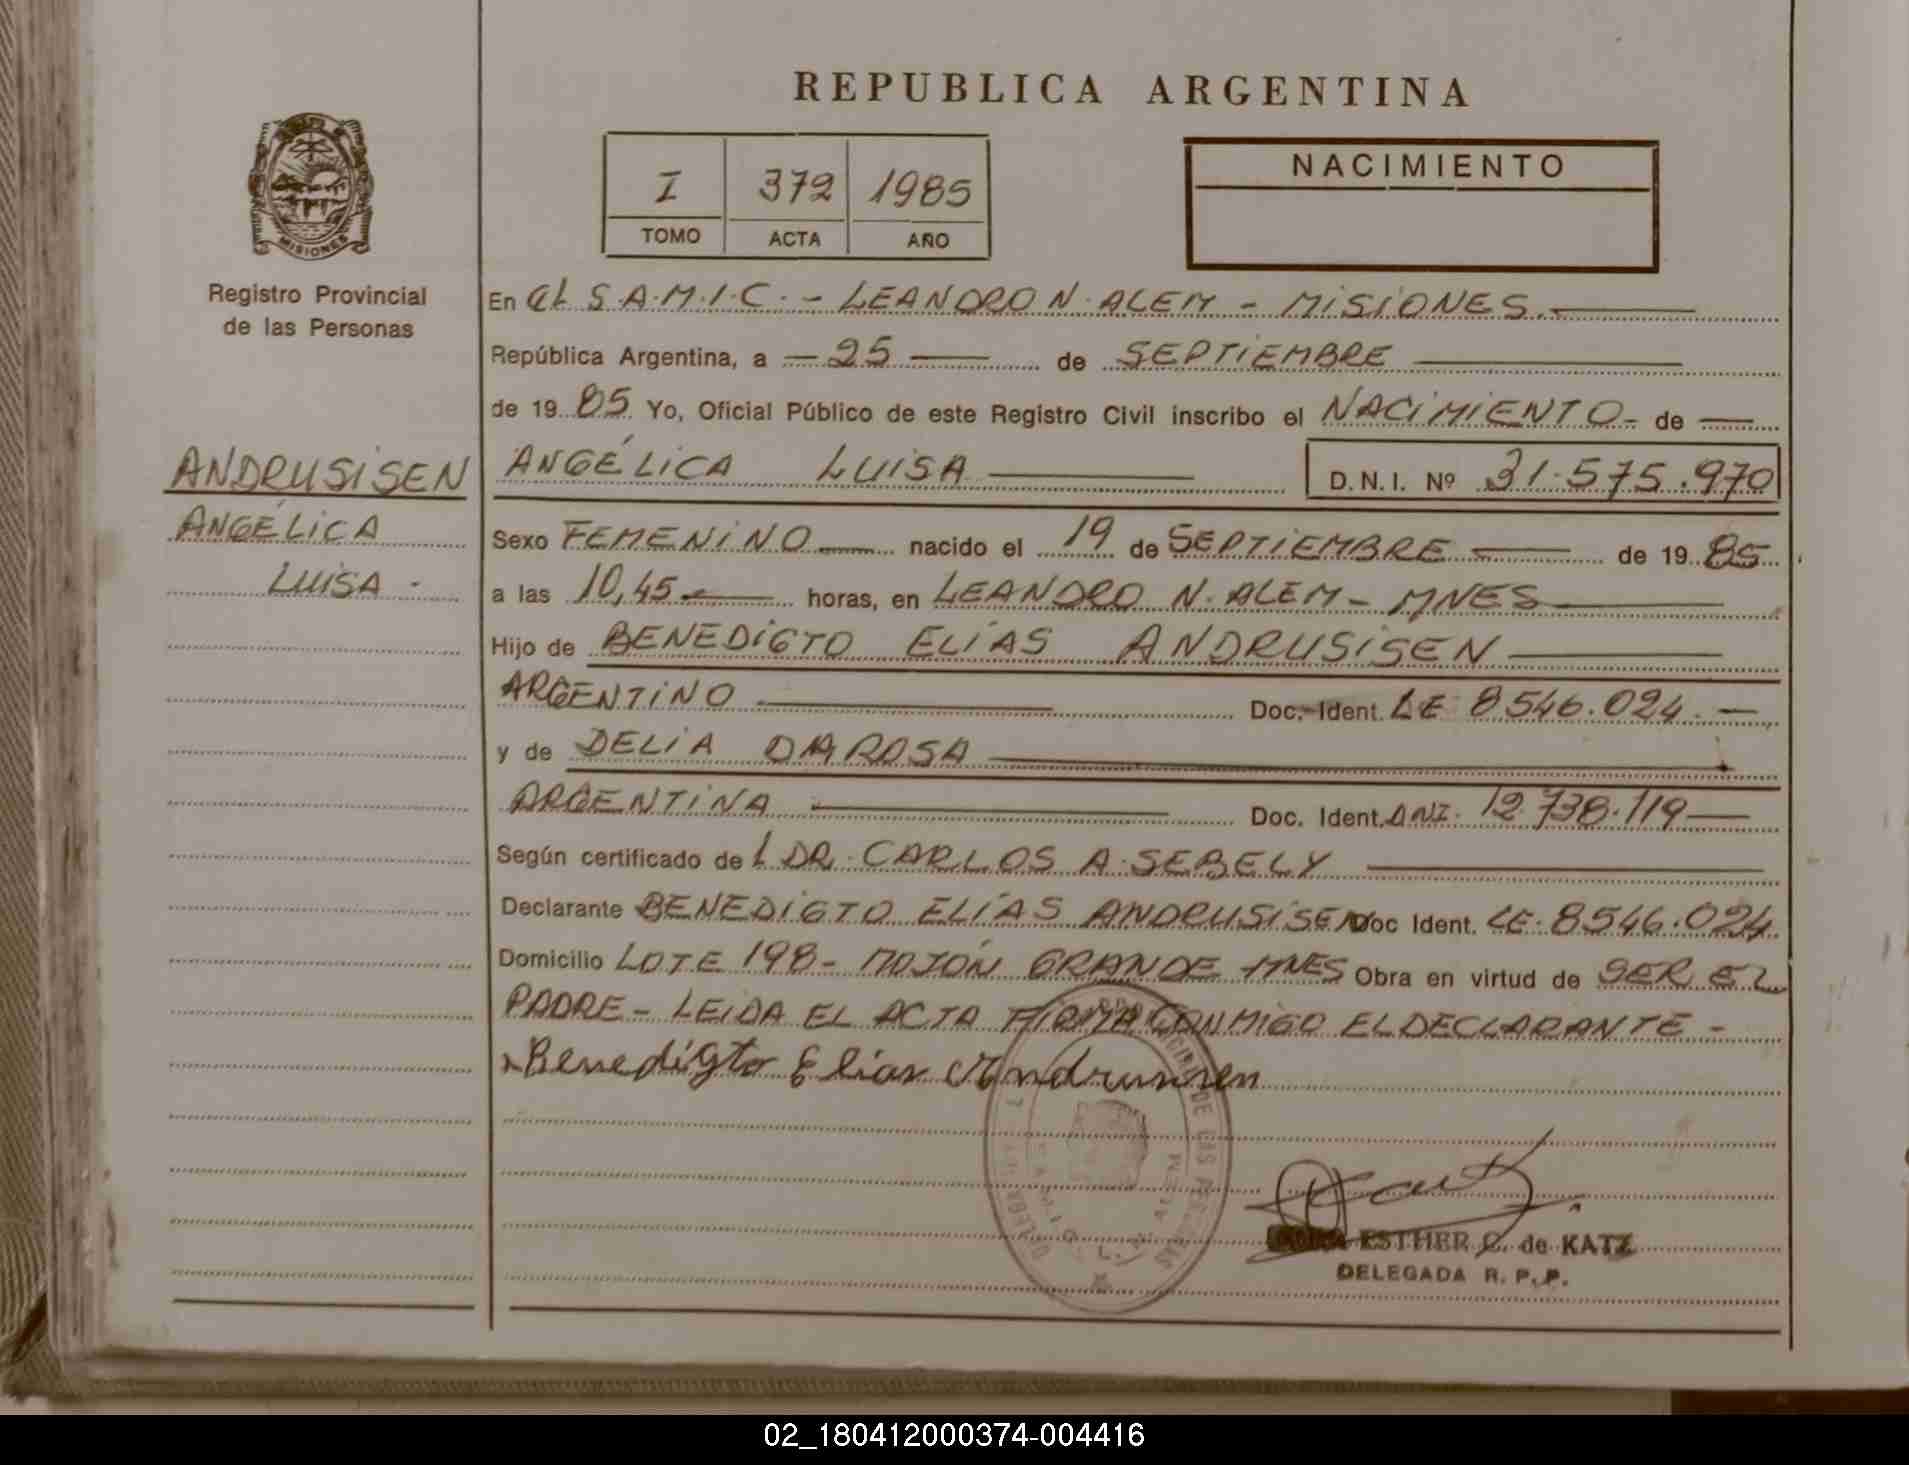 REPUBLICA ARGENTINA
MISIONES
Registro Provincial
de las Personas
I 372 1985
TOMO ACTA AÑO
NACIMIENTO
ANDRUSISEN
ANGÉLICA
LUISA -
En el S.A.M.I.C. - LEANDRO N. ALEM - MISIONES.
República Argentina, a - 25 - de SEPTIEMBRE
de 19 85 Yo, Oficial Público de este Registro Civil inscribo el NACIMIENTO - de -
ANGÉLICA LUISA D.N.I. Nº 31.575.970
Sexo FEMENINO nacido el 19 de SEPTIEMBRE de 19 85
a las 10,45 horas, en LEANDRO N. ALEM - MNES
Hijo de BENEDIGTO ELIAS ANDRUSISEN
ARGENTINO Doc. Ident. LE 8546.024. -
y de DELIA DA ROSA
ARGENTINA Doc. Ident. DNI. 12.738.119
Según certificado de L DR. CARLOS A. SEBELY
Declarante BENEDIGTO ELÍAS ANDRUSISEN Doc Ident. LE. 8546.024
Domicilio LOTE 198 - MOJÓN GRANDE MNES Obra en virtud de SER EL
PADRE - LEIDA EL ACTA FIRMA CONMIGO EL DECLARANTE -
Benedigto Elias Andrusisen
DE LAS PERSONAS
S.A.M.I.C. L. N. ALEM
ESTHER C. de KATZ
DELEGADA R. P. P.
02_180412000374-004416